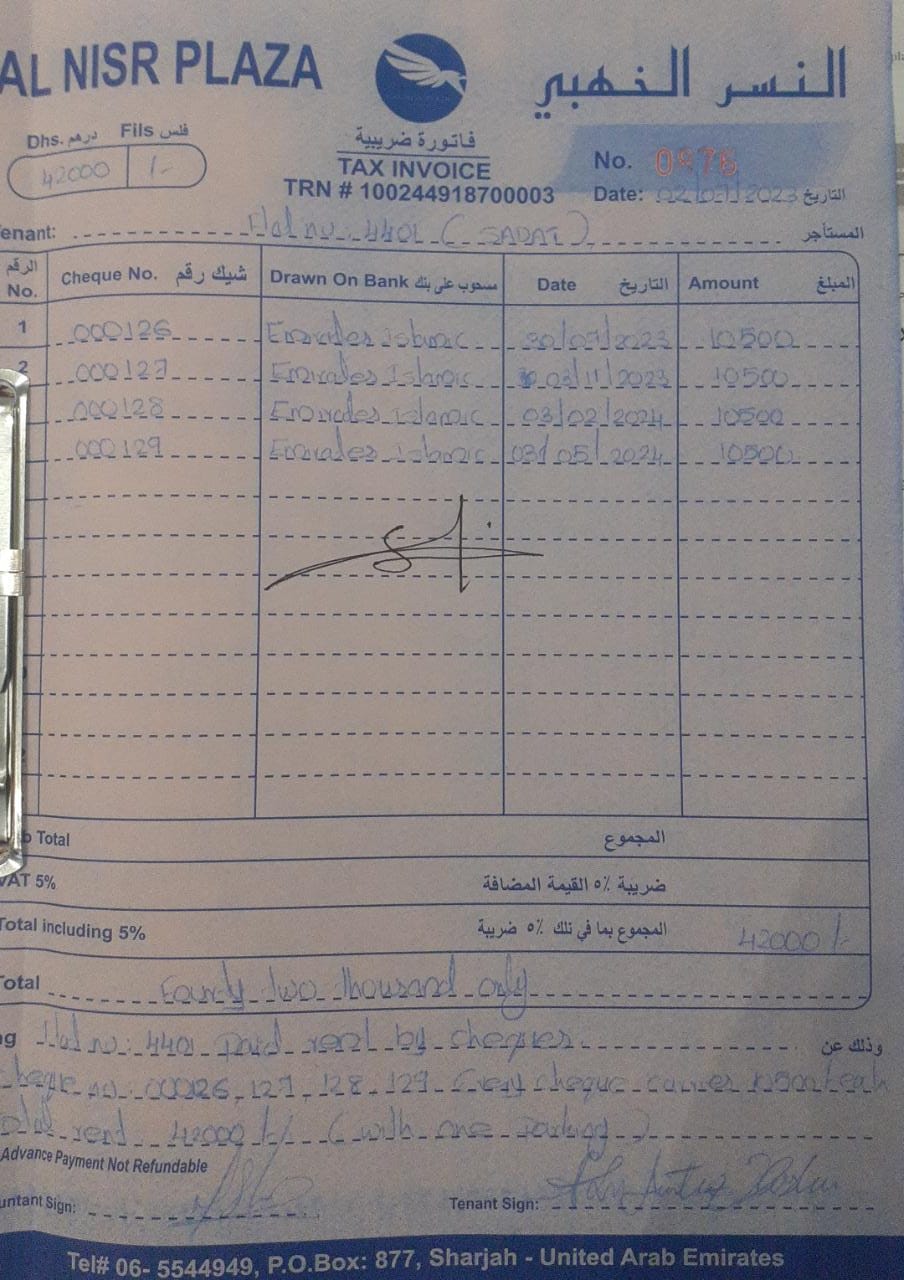 AL NISR PLAZA
النسر الذهبي
Dhs. درهم Fils فلس
42000 /-
فاتورة ضريبية
TAX INVOICE
TRN # 100244918700003
No. 0976
Date: 2023 التاريخ
enant: Flat no: 4401 (SADAT) المستأجر
الرقم No. Cheque No. شيك رقم Drawn On Bank مسحوب على بنك Date التاريخ Amount المبلغ
1 000126 Emirates Islamic 30/07/2023 10500
2 000127 Emirates Islamic 03/11/2023 10500
000128 Emirates Islamic 03/02/2024 10500
000129 Emirates Islamic 03/05/2024 10500
b Total المجموع
VAT 5% ضريبة ٥٪ القيمة المضافة
Total including 5% المجموع بما في ذلك ٥٪ ضريبة 42000/-
Total Fourty two thousand only
g Flat no: 4401 paid rent by cheques. وذلك عن
cheque no: 00026, 127, 128, 129. Every cheque carries
total rent 42000/- (with one Parking)
Advance Payment Not Refundable
untant Sign: Tenant Sign:
Tel# 06- 5544949, P.O.Box: 877, Sharjah - United Arab Emirates